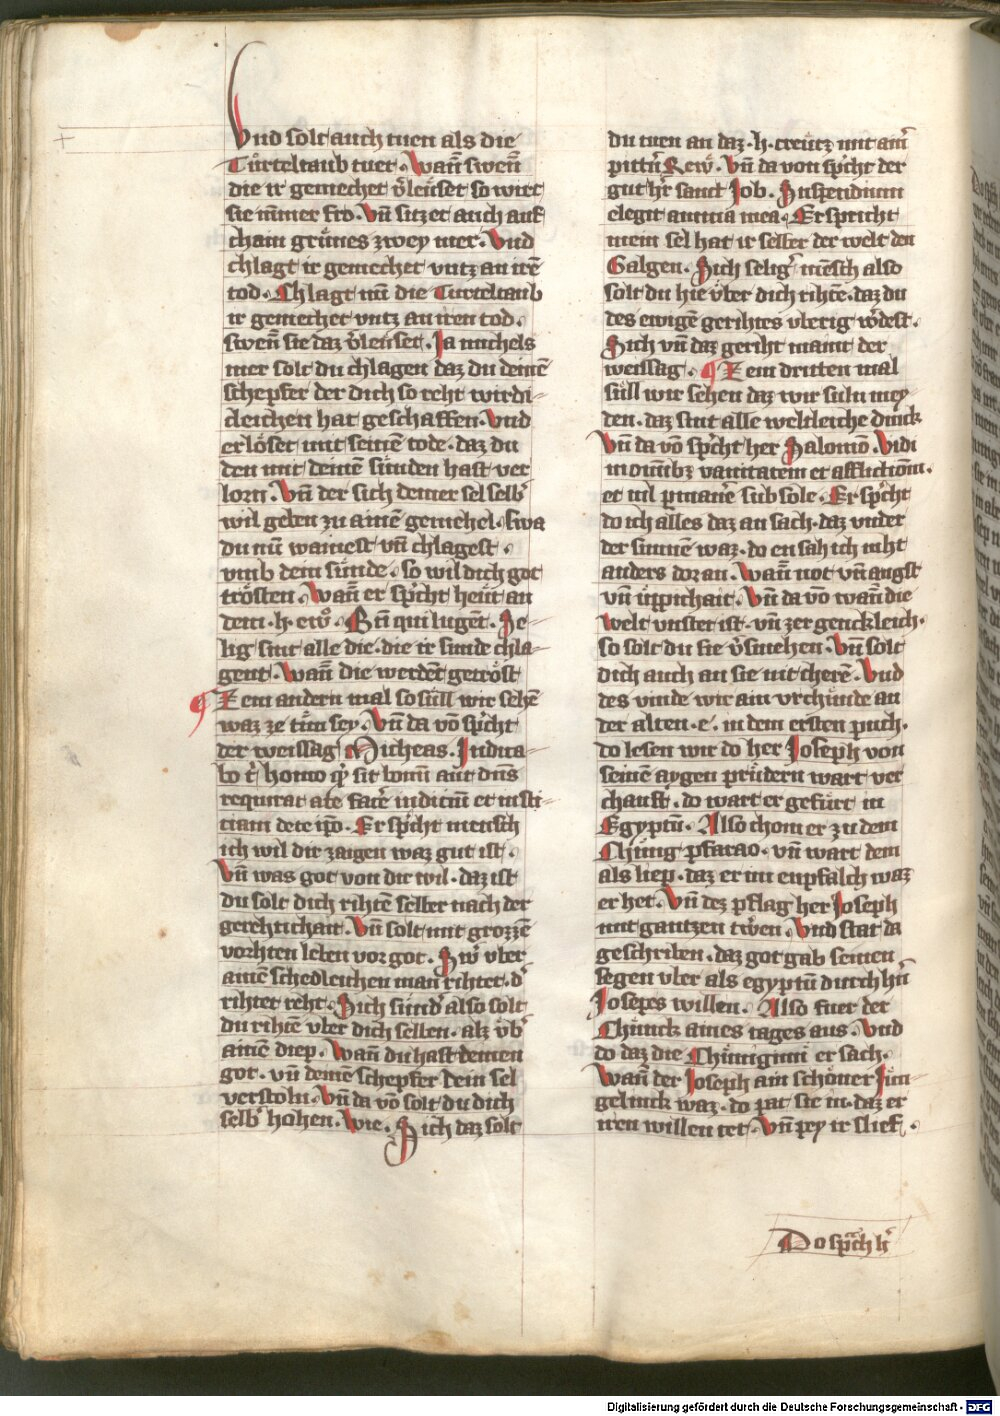 Vnd solt auch tuen als die
Türteltaub tuet · wañ swen̄
die ir gemechet v̓leüset so wirt
sie nimer fro · Vn̄ sitzet auch auf
chain grünes zwey mer · Vnd
chlagt ir gemechet vntz an irē
tod · Chlagt nu die Turteltaub
ir gemechet vntz an iren tod ·
swen̄ sie daz v̓leuset · Ja michels
mer solt du chlagen daz du deinē
schepfer der dich so reht wirdi-
cleichen hat geschaffen · Vnd
erlöset mit seinē tode · daz du
den mit deinē sünden hast ver
lorn · Vn̄ der sich deiner sel selb̓
wil geben zu ainē gemehel · swa
du nu wainest vn̄ chlagest ·
vmb dein sünde · so wil dich got
trösten · wan̄ er sp̓cht heut an
dem · h · ew̓ · Bn̄ qui lugēt · Se-
lig sint alle die · die ir sunde chla-
gent · wan̄ die werdēt getröst
¶ Zem andern mal so süll wir sehē
waz ze tün sey · Vn̄ da vō sp̓cht
der weissag Micheas · Indica-
bo t̓ homo q̓ sit bonū aut dn̄s
requirat a te facē iudiciū et iusti-
ciam de te ip̄o · Er sp̓cht mensch
ich wil dir zaigen waz gut ist ·
Vn̄ was got von dir wil · daz ist
du solt dich rihtē selber nach der
gerehtichait · Vn̄ solt mit grozzē
vorhten leben vor got · Sw̓ vber
ainē schedleichen man rihtet · d̓
rihtet reht · Sich sünd̓ also solt
du rihtē vber dich selben · alz v̈b̓
ainē diep · wan̄ du hast deinen
got · vn̄ deinē schepfer dein sel
verstoln · Vn̄ da vō solt du dich
selb̓ hohen · wie · Sich daz solt
du tuen an daz · h · creütz mit aim̓
pittn̓ Rew̓ · Vn̄ da von sp̓cht der
gut h̓r sanct Job · Suspendium
elegit anima mea · Er spricht
mein sel hat ir selber der welt den
Galgen · Sich selig̓ mēsch also
solt du hie v̈ber dich rihtē · daz du
des ewigē gerihtes vberig w̓dest ·
Sich vn̄ daz geriht maint der
weissag · ¶ Zem dritten mal
süll wir sehen daz wir suln mey
den · daz sint alle weltleiche dinck
Vn̄ da vō sp̓cht her Salomō · Vidi
in omībz vanitatem et afflictiōm ·
et nil p̱manē sub sole · Er sp̓cht
do ich alles daz an sach · daz vnder
der sunnē waz · do en sah ich niht
anders dor an · wan̄ not vn̄ angst
vn̄ üppichait · Vn̄ da vō wan̄ die
welt vnstet ist · vn̄ zergenckleich ·
so solt du sie v̓smehen · Vn̄ solt
dich auch an sie nit cherē · Vnd
des vinde wir ain vrchünde an
der alten · e · in dem ersten puch ·
do lesen wir do her Joseph von
seinē aygen prüdern wart ver
chauft · do wart er gefürt in
Egyptū · Also chom er zu dem
Chünig pfarao · vn̄ wart dem
als liep · daz er im enpfalch waz
er het · Vn̄ dez pflag her Joseph
mit gantzen trẅen · Vnd stat da
geschriben · daz got gab seinen
segen vber als egyptū durch h̓n
Josepes willen · Also fuer der
Chünick aines tages aus · Vnd
do daz die Chünigiñ ersach ·
wan̄ der Joseph ain schöner Jün-
gelinck waz · do pat sie in · daz er
iren willen tet · Vn̄ pey ir slief ·
Do sprach h̓
Digitalisierung gefördert durch die Deutsche Forschungsgemeinschaft - DFG